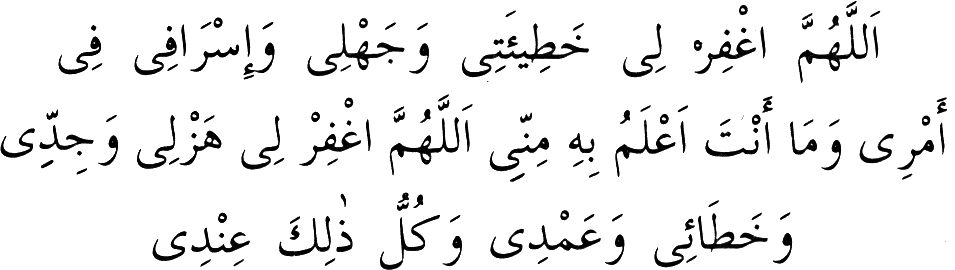 اَللَّهُمَّ اغْفِرْ لِى خَطِيئَتِى وَجَهْلِى وَإِسْرَافِى فِى
أَمْرِى وَمَا أَنْتَ اَعْلَمُ بِهِ مِنِّى اَللَّهُمَّ اغْفِرْ لِى هَزْلِى وَجِدِّى
وَخَطَائِى وَعَمْدِى وَكُلُّ ذٰلِكَ عِنْدِى